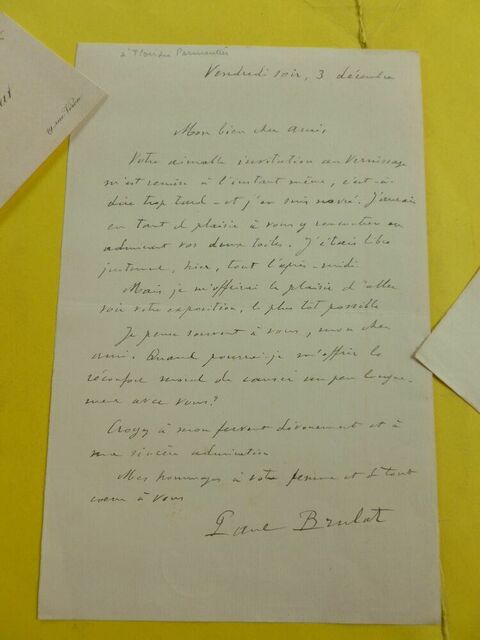 à Florian Parmentier
Vendredi soir, 3 décembre
Mon bien cher ami,
Votre aimable invitation au Vernissage
m'est remise à l'instant même, c'est-à-
dire trop tard - et j'en suis navré. J'aurais
eu tant de plaisir à vous y rencontrer en
admirant vos deux toiles. J'étais libre
justement, hier, tout l'après-midi.
Mais je m'offrirai le plaisir d'aller
voir votre exposition, le plus tôt possible
Je pense souvent à vous, mon cher
ami. Quand pourrai-je m'offrir le
réconfort moral de causer un peu longue-
ment avec vous?
Croyez à mon fervent dévouement et à
ma sincère admiration
Mes hommages à votre femme et tout
coeur à vous
Paul Brulat